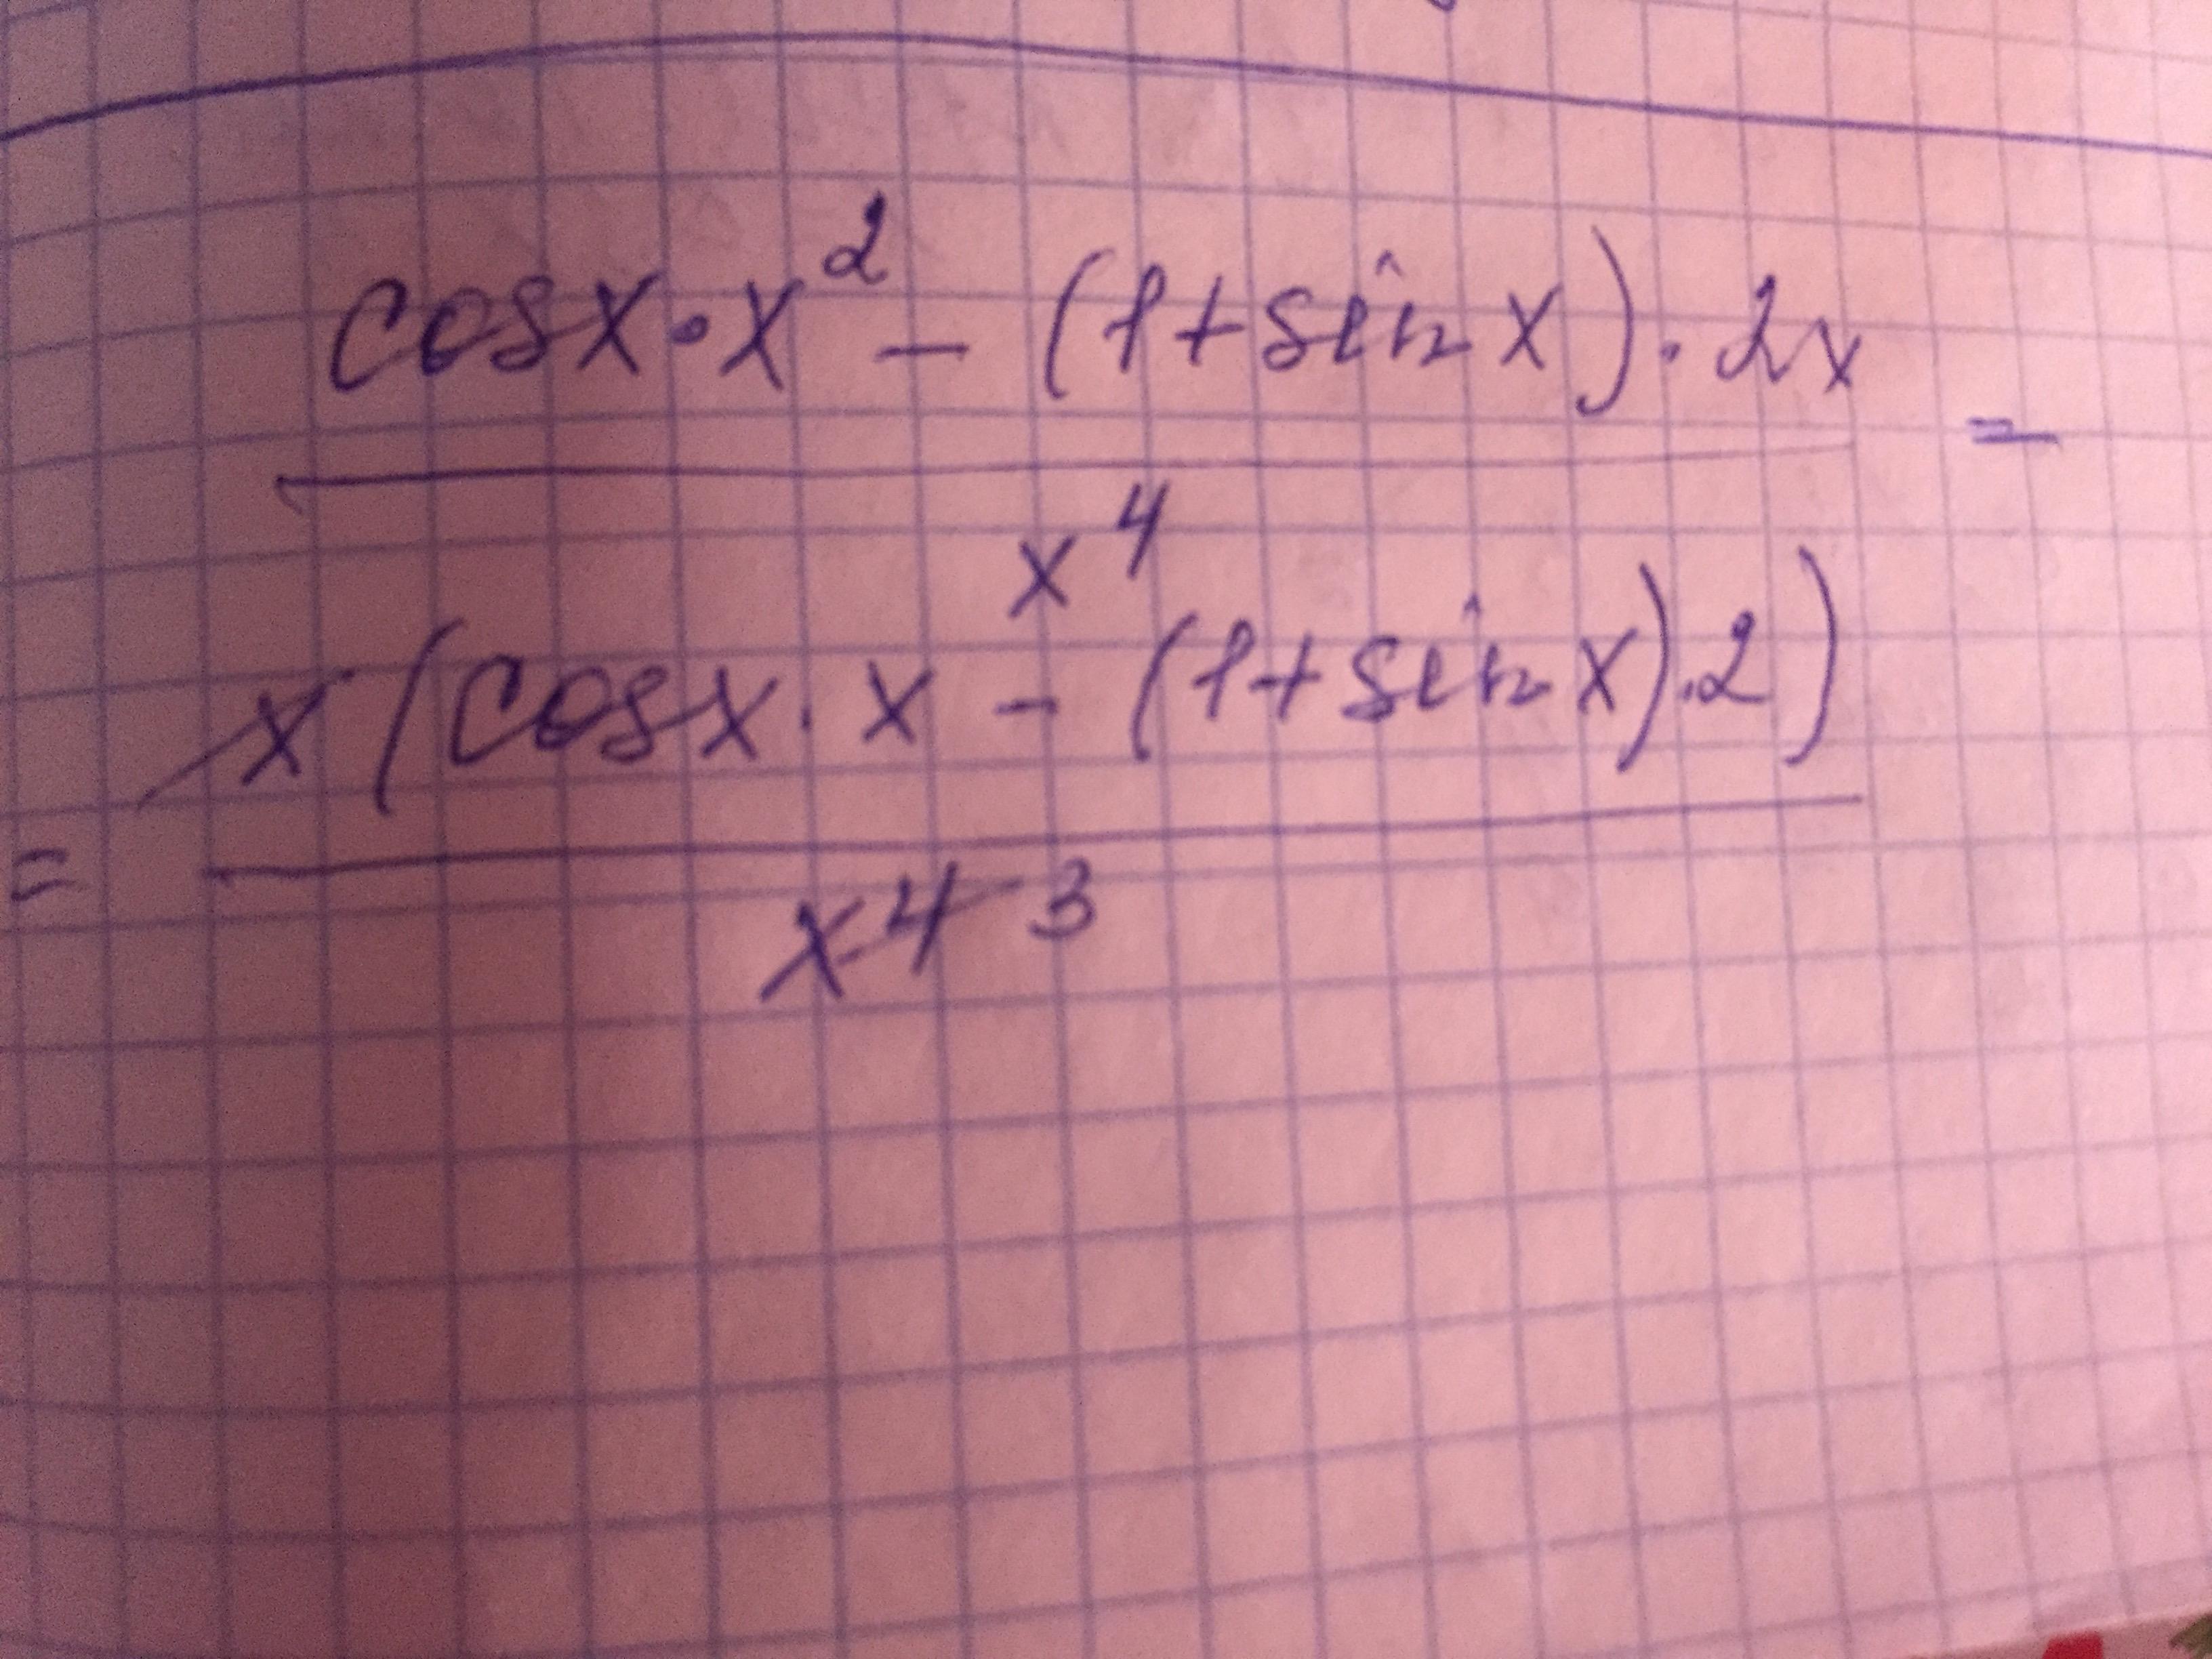 cosx·x² - (1+sin x)·2x =
x⁴
= x(cosx·x - (1+sin x)·2)
x⁴ ³